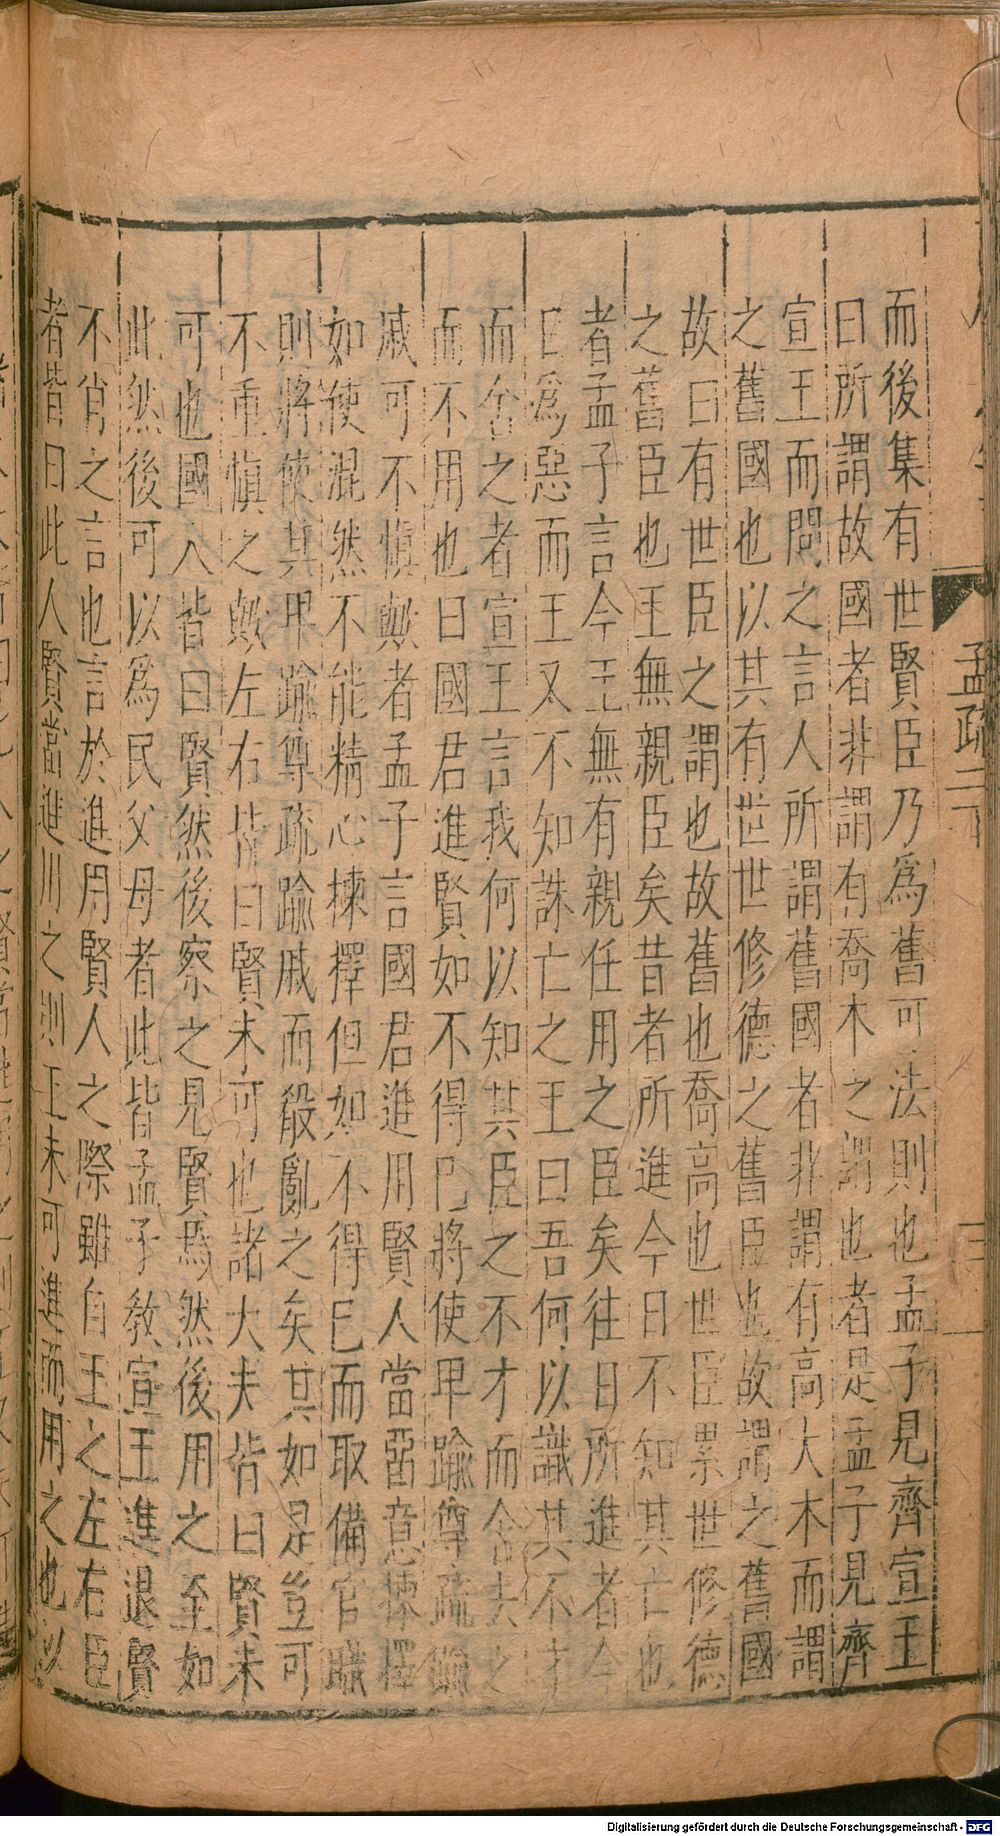 而後集有世賢臣乃爲舊可法則也孟子見齊宣王
曰所謂故國者非謂有喬木之謂也者是孟子見齊
宣王而問之言人所謂舊國者非謂有高大木而謂
之舊國也以其有世世修德之舊臣也故謂之舊國
故曰有世臣之謂也故舊也喬高也世臣累世修德
之舊臣也王無親臣矣昔者所進今日不知其亡也
者孟子言今王無有親任用之臣矣往日所進者今
日爲惡而王又不知誅亡之王曰吾何以識其不才
而舍之者宣王言我何以知其臣之不才而舍去之
而不用也曰國君進賢如不得已將使卑踰尊疏踰
戚可不愼歟者孟子言國君進用賢人當留意揀擇
如使混然不能精心揀擇但如不得已而取備官職
則將使其卑踰尊疏踰戚而殽亂之矣其如是豈可
不重愼之歟左右皆曰賢未可也諸大夫皆曰賢未
可也國人皆曰賢然後察之見賢焉然後用之至如
此然後可以爲民父母者此皆孟子敎宣王進退賢
不肖之言也言於進用賢人之際雖自王之左右臣
者皆曰此人賢當進用之則王未可進而用之也以
孟疏二下
三
Digitalisierung gefördert durch die Deutsche Forschungsgemeinschaft - DFG